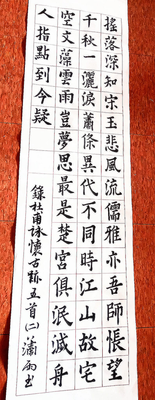 搖落深知宋玉悲風流儒雅亦吾師悵望
千秋一灑淚蕭條異代不同時江山故宅
空文藻雲雨豈夢思最是楚宮俱泯滅舟
人指點到今疑
錄杜甫詠懷古跡五首(二)瀟雨书